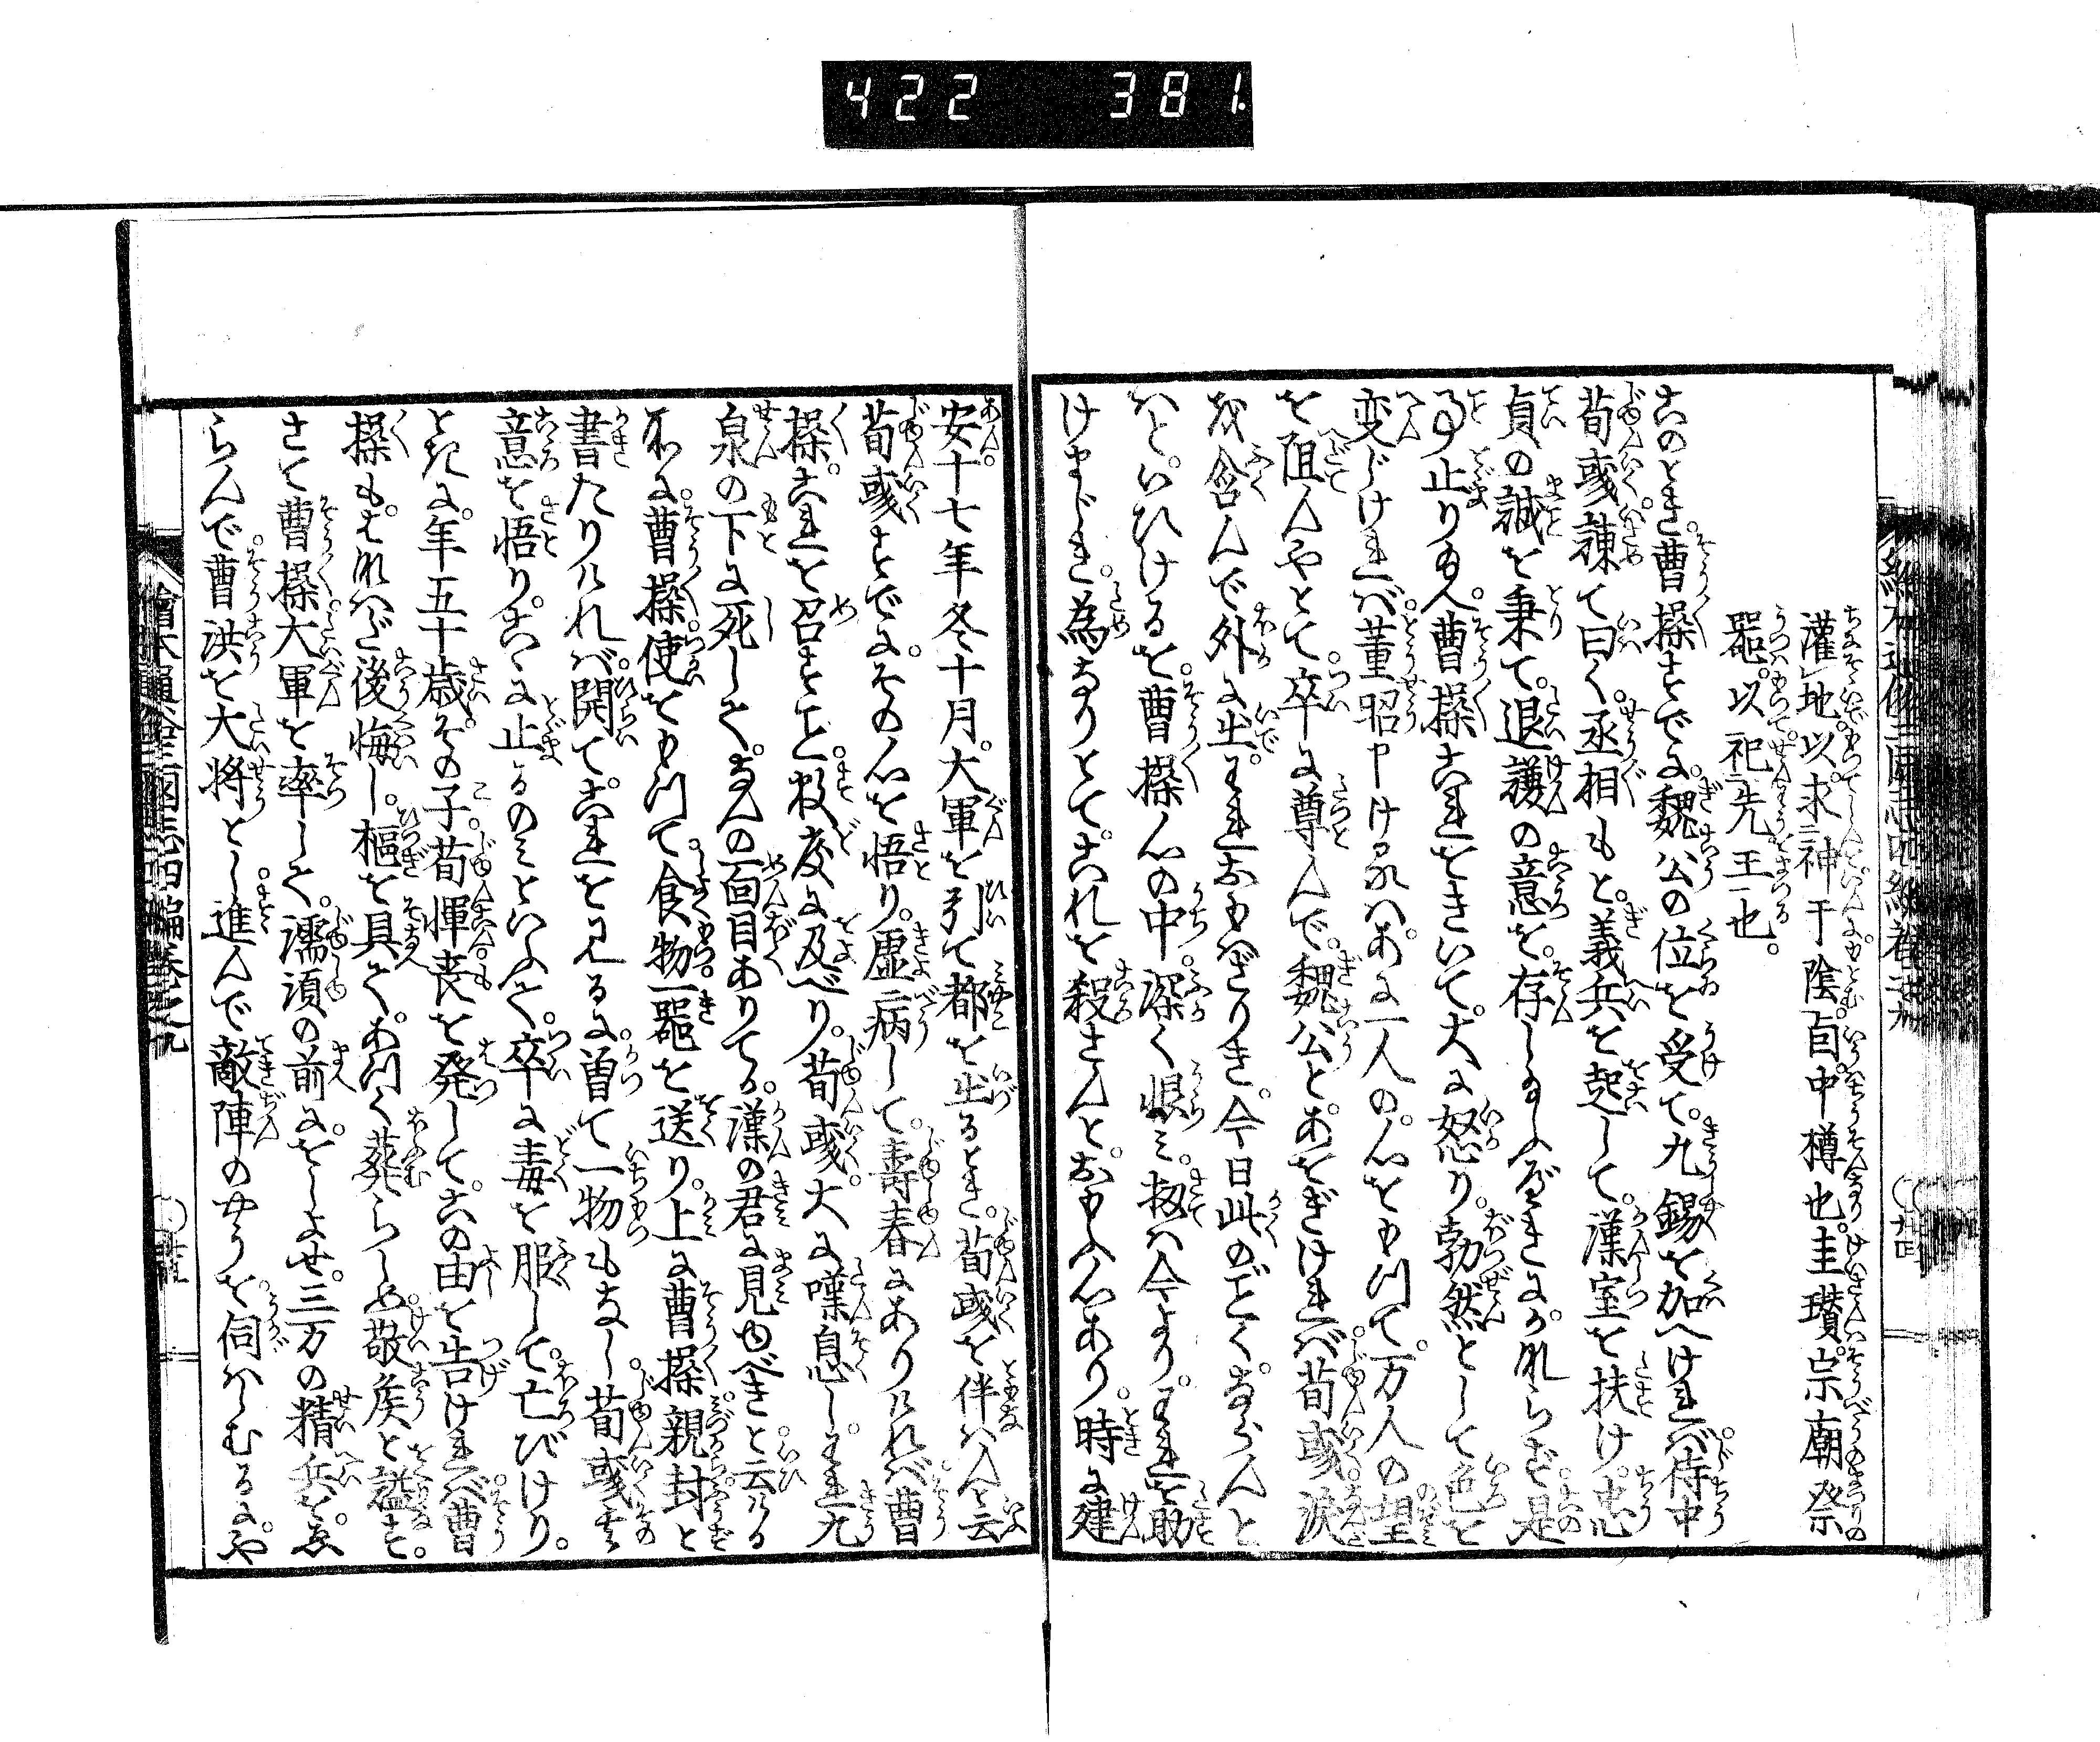 422 381
灌地以求神于陰。卣中樽也。圭瓚宗廟祭
器。以祀先王也。
このとき曹操すでに魏公の位を受て。九錫を加へければ侍中
荀彧諫て曰く。丞相もと義兵を起して。漢室を扶け。忠
貞の誠を秉て。退譲の意を。存し
止り。曹操これをきいて。大に怒り。勃然として色を
変じければ董昭申けるはあに一人の心をもつて。万人の望
を阻んやとて。卒に尊んで。魏公とあをぎければ荀彧涙
を含んで外に出。われおもはざりき。今日此のごくならんと
はといひけるを。曹操心の中深く恨み。扨は今より。われを助
けまじき。為なりとて。これを殺さんとおもふ心あり。時に建
安十七年冬十月。大軍を引て都を出るとき。荀彧を伴はんと云
荀彧すでに。その心を悟り。虚病して。壽春にありければ曹
操。これを召すこと。数度に及べり。荀彧。大に嘆息し。われ九
泉の下に死して。なんの面目ありてか。漢の君に見ゆべきと云ける
所に。曹操使をもつて。食物一器を送り。上に曹操親封と
書たりければ。開て。これを見るに。曽て一物もなし。荀彧其
意を悟り。こゝに止るのみといふて。卒に毒を服して。亡びけり。
ときに。年五十歳。その子。荀惲喪を発して。この由を告ければ曹
操も。はなはだ後悔し。柩を具へて。あつく葬らしめ敬侯と謚す。
さて曹操大軍を率して。濡須の前に。をしよせ。三万の精兵をゑ
らんで曹洪を大将とし。進んで敵陣のやうを。伺はしむるに。や
繪本通俗三國志四編巻之九